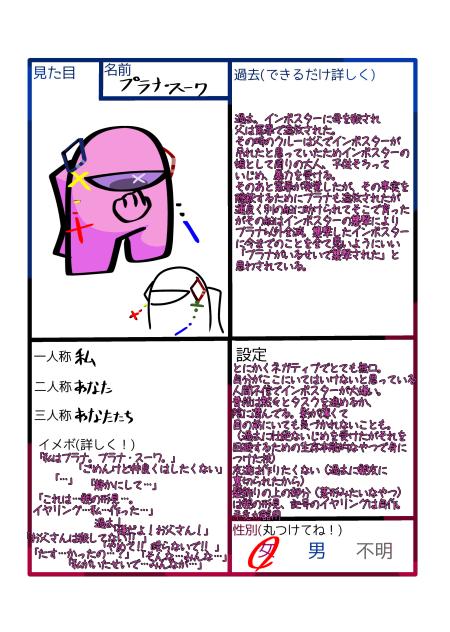 見た目
名前
プラナ・スーワ
過去(できるだけ詳しく)
過去、インポスターに母を殺され
父は冤罪で追放された。
その時のクルーは父でインポスターが
吊れたと思っていたためインポスターの
娘として周りの大人、子供そろって
いじめ、暴力を受ける。
そのあと冤罪が発覚したが、その事実を
隠蔽するためにプラナも追放されたが
運良く別の船に助けられてそこで育った
がその船はインポスターの襲撃により
プラナ以外全滅、襲撃したインポスター
に今までのことを全て見いようにいい
「プラナがいるせいで襲撃された」と
思わされている。
一人称 私
二人称 あなた
三人称 あなたたち
イメボ(詳しく!)
「私はプラナ。プラナ・スーワ。」
「ごめんけど仲良くはしたくない」
「…」 「静かにして…」
「これは…親の形見。
イヤリング…私…作った…」
過去
「だよ!お父さん!」
お父さんは殺してない!!
「やめて!! 帰らないで!!」
「たす…かったの…?」「そんな…みんな…」
「私がいたせいで…みんなが…」
設定
とにかくネガティブでとても無口。
自分がここにいてはいけないと思っている
人間不信でインポスターが大嫌い。
普段は黙々とタスクを進めるか、
陰に潜んでる。影が薄くて
目の前にいても気づかれないことも。
(過去に壮絶ないじめを受けたがそれを
回避するための生存本能的なやつで身に
つけた技)
友達は作りたくない(過去に親友に
裏切られたから)
の上の部分(葉形みたいなやつ)
は親の形見、記号のイヤリングは自作
性別(丸つけてね!)
女 男 不明